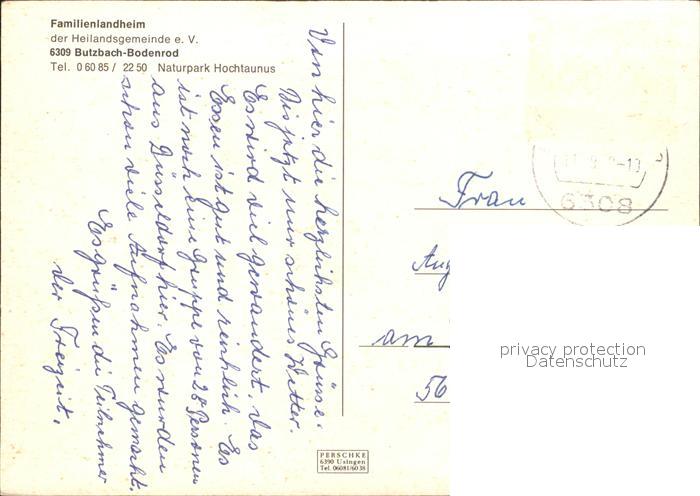 Familienlandheim
der Heilandsgemeinde e. V.
6309 Butzbach-Bodenrod
Tel. 0 60 85 / 22 50 Naturpark Hochtaunus
Von hier die herzlichsten Grüsse.
Bis jetzt nur schönes Wetter.
Es wird viel gewandert. Das
Essen ist gut und reichlich. Es
ist noch eine Gruppe von 28 Personen
aus Düsseldorf hier. Es wurden
schon viele Aufnahmen gemacht.
Es grüßen die Teilnehmer
der Freizeit.
6308
Frau
Aug
am
56
privacy protection
Datenschutz
PERSCHKE
6390 Usingen
Tel. 06081/6038